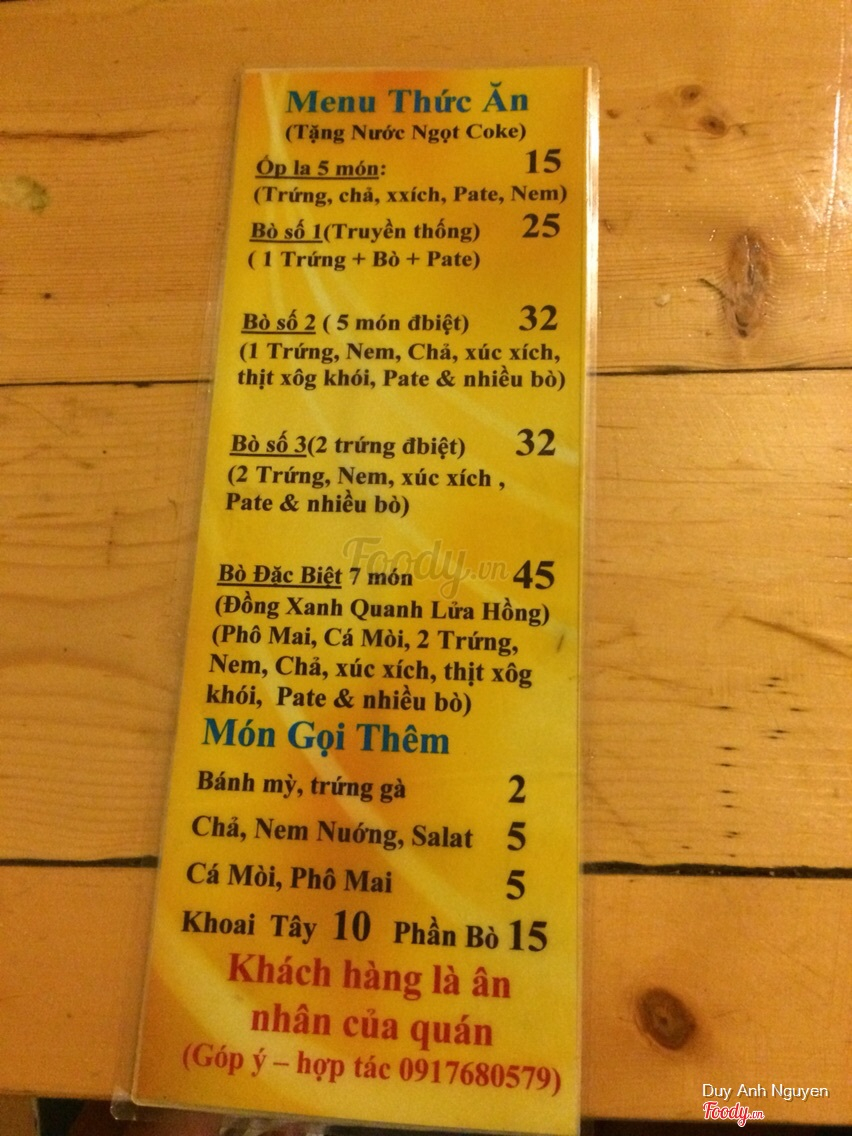 Menu Thức Ăn
(Tặng Nước Ngọt Coke)
Óp la 5 món: 15
(Trứng, chả, xxích, Pate, Nem)
Bò số 1(Truyền thống) 25
( 1 Trứng + Bò + Pate)
Bò số 2 ( 5 món đbiệt) 32
(1 Trứng, Nem, Chả, xúc xích,
thịt xôg khói, Pate & nhiều bò)
Bò số 3(2 trứng đbiệt) 32
(2 Trứng, Nem, xúc xích ,
Pate & nhiều bò)
Foody.vn
Bò Đặc Biệt 7 món 45
(Đồng Xanh Quanh Lửa Hồng)
(Phô Mai, Cá Mòi, 2 Trứng,
Nem, Chả, xúc xích, thịt xôg
khói, Pate & nhiều bò)
Món Gọi Thêm
Bánh mỳ, trứng gà 2
Chả, Nem Nuớng, Salat 5
Cá Mòi, Phô Mai 5
Khoai Tây 10 Phần Bò 15
Khách hàng là ân
nhân của quán
(Góp ý – hợp tác 0917680579)
Duy Anh Nguyen
Foody.vn